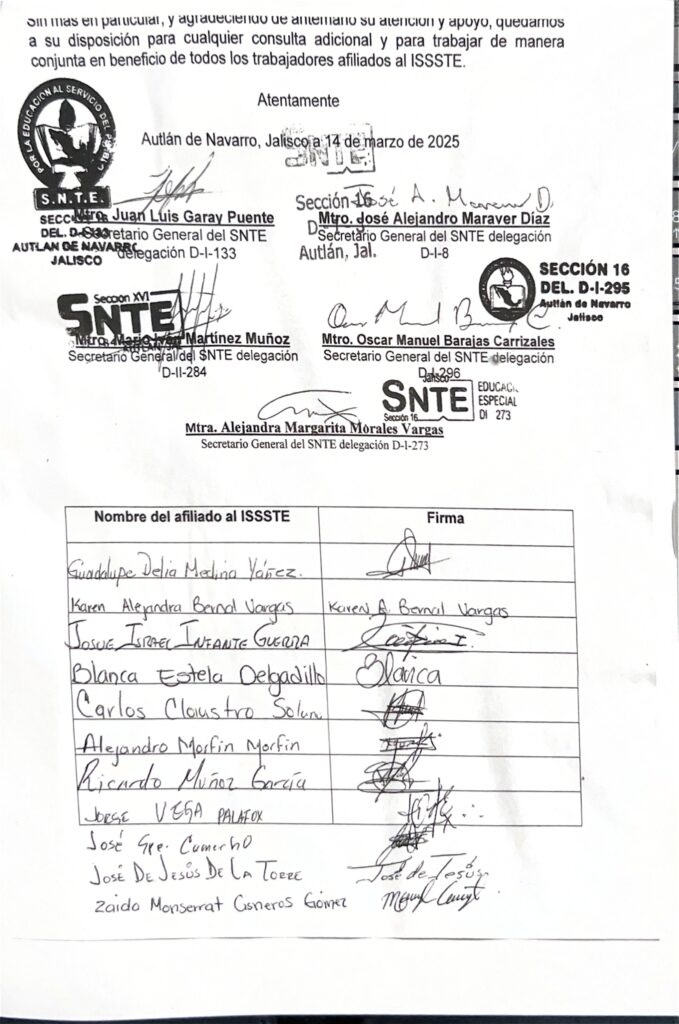 Sin más en particular, y agradeciendo de antemano su atención y apoyo, quedamos
a su disposición para cualquier consulta adicional y para trabajar de manera
conjunta en beneficio de todos los trabajadores afiliados al ISSSTE.
Atentamente
Autlán de Navarro, Jalisco a 14 de marzo de 2025
POR LA EDUCACION AL SERVICIO DEL PUEBLO
S.N.T.E.
DEL. D-I-133
AUTLAN DE NAVARRO
JALISCO
Mtro. Juan Luis Garay Puente
Secretario General del SNTE
delegación D-I-133
SNTE
Sección 16
Autlán, Jal.
José A. Maraver D.
Mtro. José Alejandro Maraver Díaz
Secretario General del SNTE delegación
D-I-8
SECCIÓN 16
DEL. D-I-295
Autlán de Navarro
Jalisco
Sección XVI
SNTE
Mtro. Mario Iván Martínez Muñoz
Secretario General del SNTE delegación
D-II-284
Mtro. Oscar Manuel Barajas Carrizales
Secretario General del SNTE delegación
D-I-296
Jalisco
SNTE
Sección 16
EDUCAC
ESPECIAL
DI 273
Mtra. Alejandra Margarita Morales Vargas
Secretario General del SNTE delegación D-I-273
Nombre del afiliado al ISSSTE Firma
Guadalupe Delia Medina Yáñez.
Karen Alejandra Bernal Vargas Karen A. Bernal Vargas
JOSUE ISRAEL INFANTE GUERRA
Blanca Estela Delgadillo Blanca
Carlos Claustro
Alejandro Morfin Morfin
Ricardo Muñoz García
JORGE VEGA PALAFOX
José Gpe. Camacho
JOSÉ DE JESÚS DE LA TORRE José de Jesús
Zaida Monserrat Cisneros Gómez